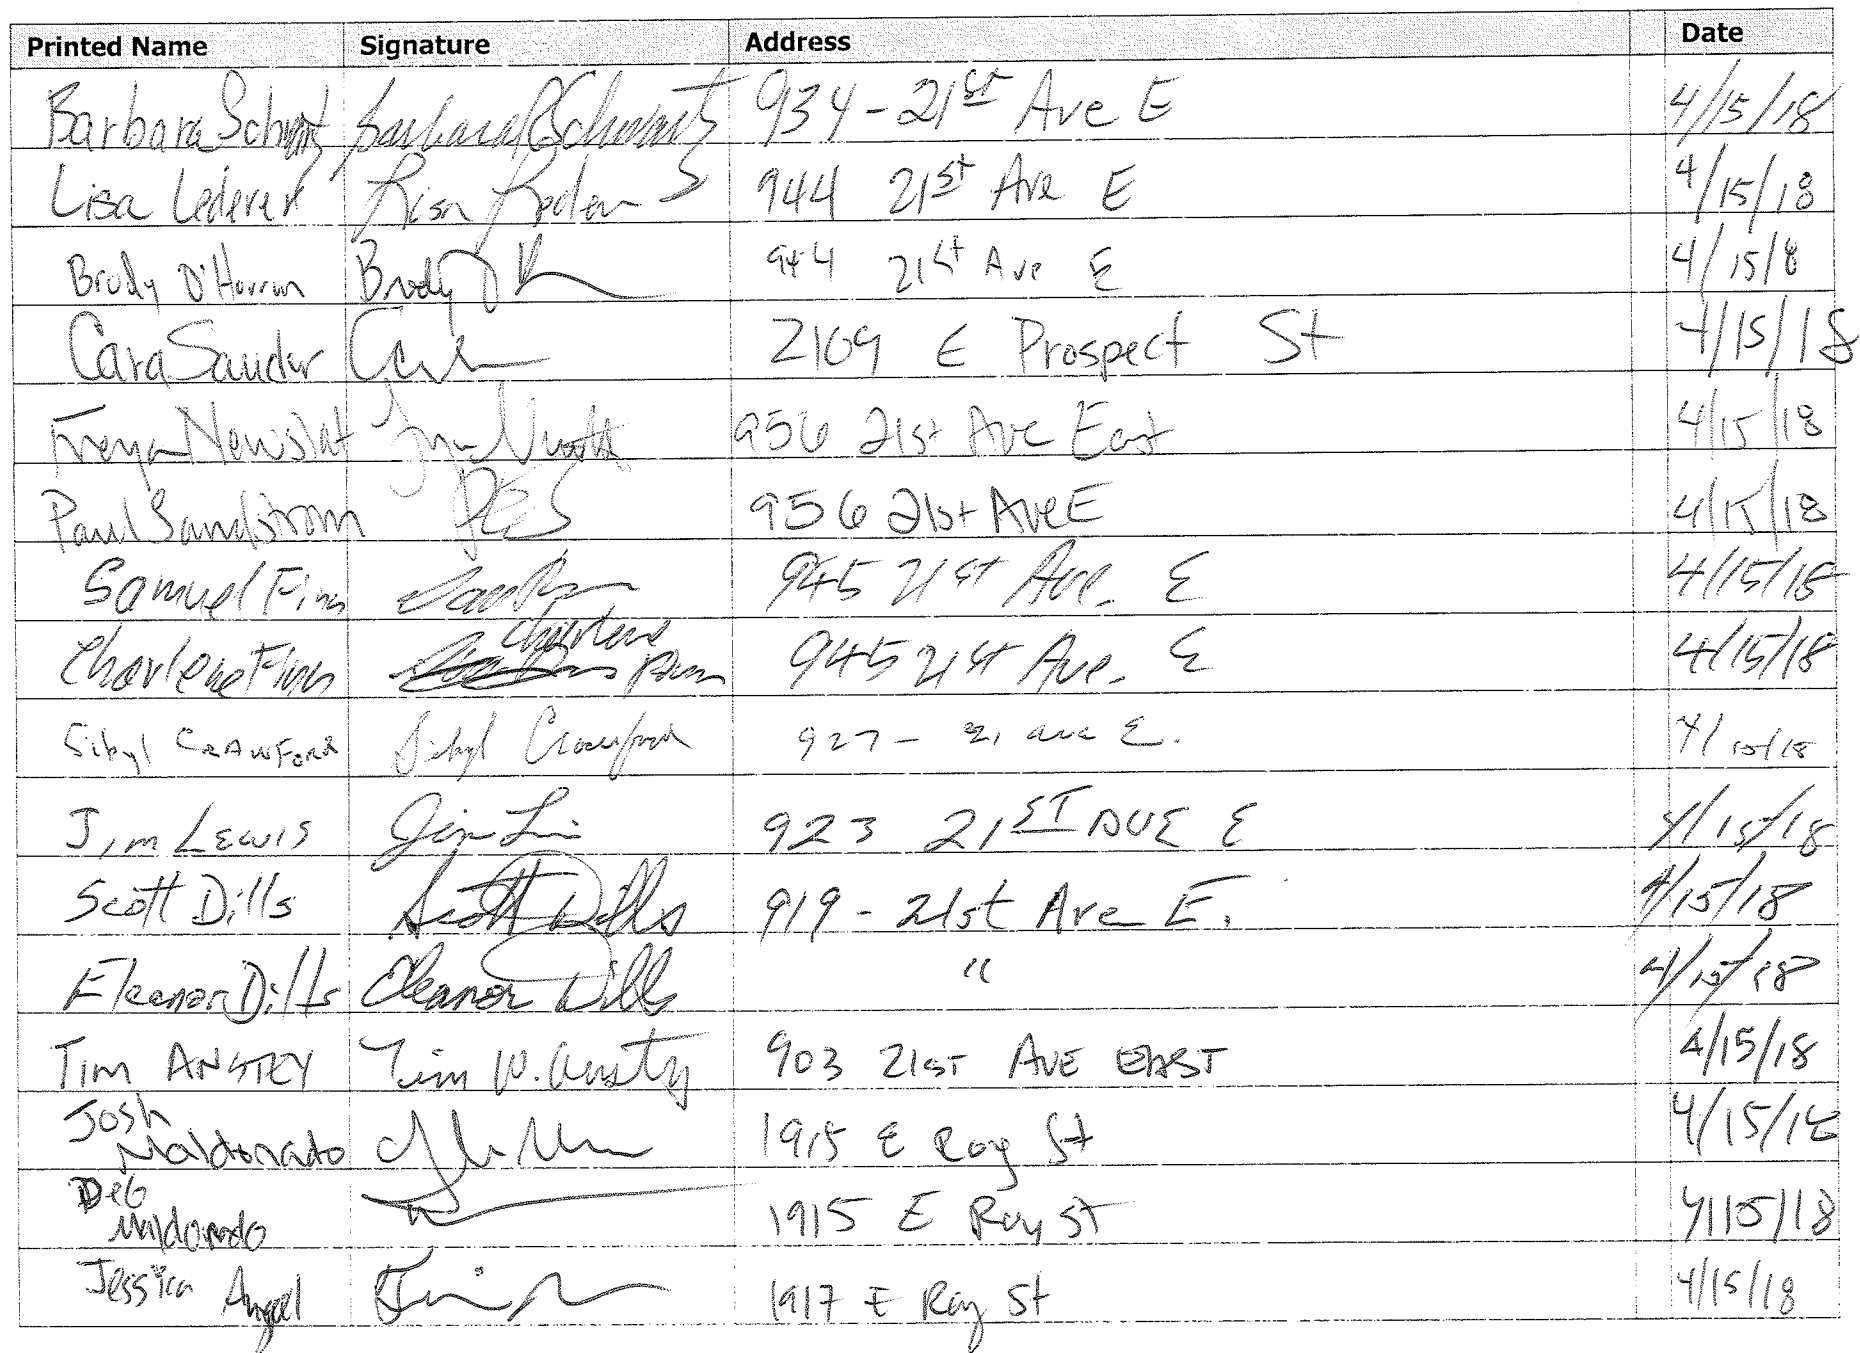 Printed Name Signature Address Date
Barbara Schwartz Barbara Schwartz 934 - 21st Ave E 4/15/18
Lisa Lederer Lisa 944 21st Ave E 4/15/18
Brody O'Horran Brody 944 21st Ave E 4/15/8
Cara Sander 2109 E Prospect St 4/15/18
Freya 956 21st Ave East 4/15/18
Paul Sandstrom PES 956 21st Ave E 4/15/18
Samuel Finn 945 21st Ave. E 4/15/18
Charlene Finn Charlene Finn 945 21st Ave. E 4/15/18
Sibyl CRAWFORD Sibyl Crawford 927 - 21 ave E. 4/15/18
Jim LEWIS Jim 923 21ST AVE E 4/15/18
Scott Dills Scott Dills 919 - 21st Ave E. 4/15/18
Eleanor Dills Eleanor Dills " 4/15/18
Tim ANSTEY Tim W. Anstey 903 21ST AVE EAST 4/15/18
Josh Maldonado 1915 E Roy St 4/15/18
Deb Maldonado 1915 E Roy St 4/15/18
Jessica Angel 1917 E Roy St 4/15/18